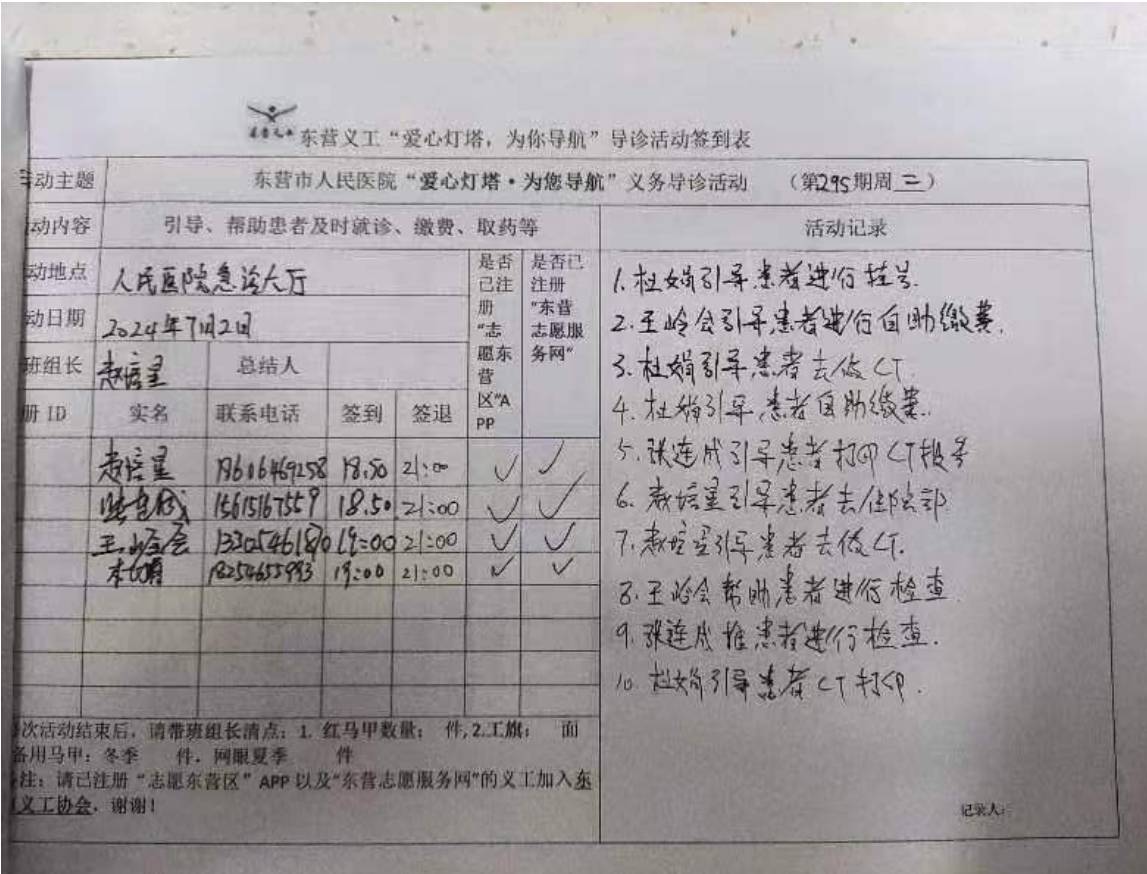 东营义工“爱心灯塔，为你导航”导诊活动签到表
动主题 东营市人民医院“爱心灯塔·为您导航”义务导诊活动 （第295期周二）
动内容 引导、帮助患者及时就诊、缴费、取药等 活动记录
动地点 人民医院急诊大厅
动日期 2024年7月2日
班组长 赵培星 总结人
册 ID 实名 联系电话 签到 签退
是否已注册“志愿东营区”APP
是否已注册“东营志愿服务网”
赵培星 18.50 21:00 ✓ ✓
15615167559 18.50 21:00 ✓ ✓
王岭会 19:00 21:00 ✓ ✓
19:00 21:00 ✓ ✓
1.杜娟引导患者进行挂号.
2.王岭会引导患者进行自助缴费.
3.杜娟引导患者去做CT.
4.杜娟引导患者自助缴费.
5.张连成引导患者打印CT报告
6.赵培星引导患者去住院部.
7.赵培星引导患者去做CT.
8.王岭会帮助患者进行检查.
9.张连成推患者进行检查.
10.杜娟引导患者CT打印.
次活动结束后，请带班组长清点：1. 红马甲数量： 件,2.工旗： 面
备用马甲：冬季 件，网眼夏季 件
注：请已注册“志愿东营区”APP 以及“东营志愿服务网”的义工加入东
义工协会，谢谢！
记录人：